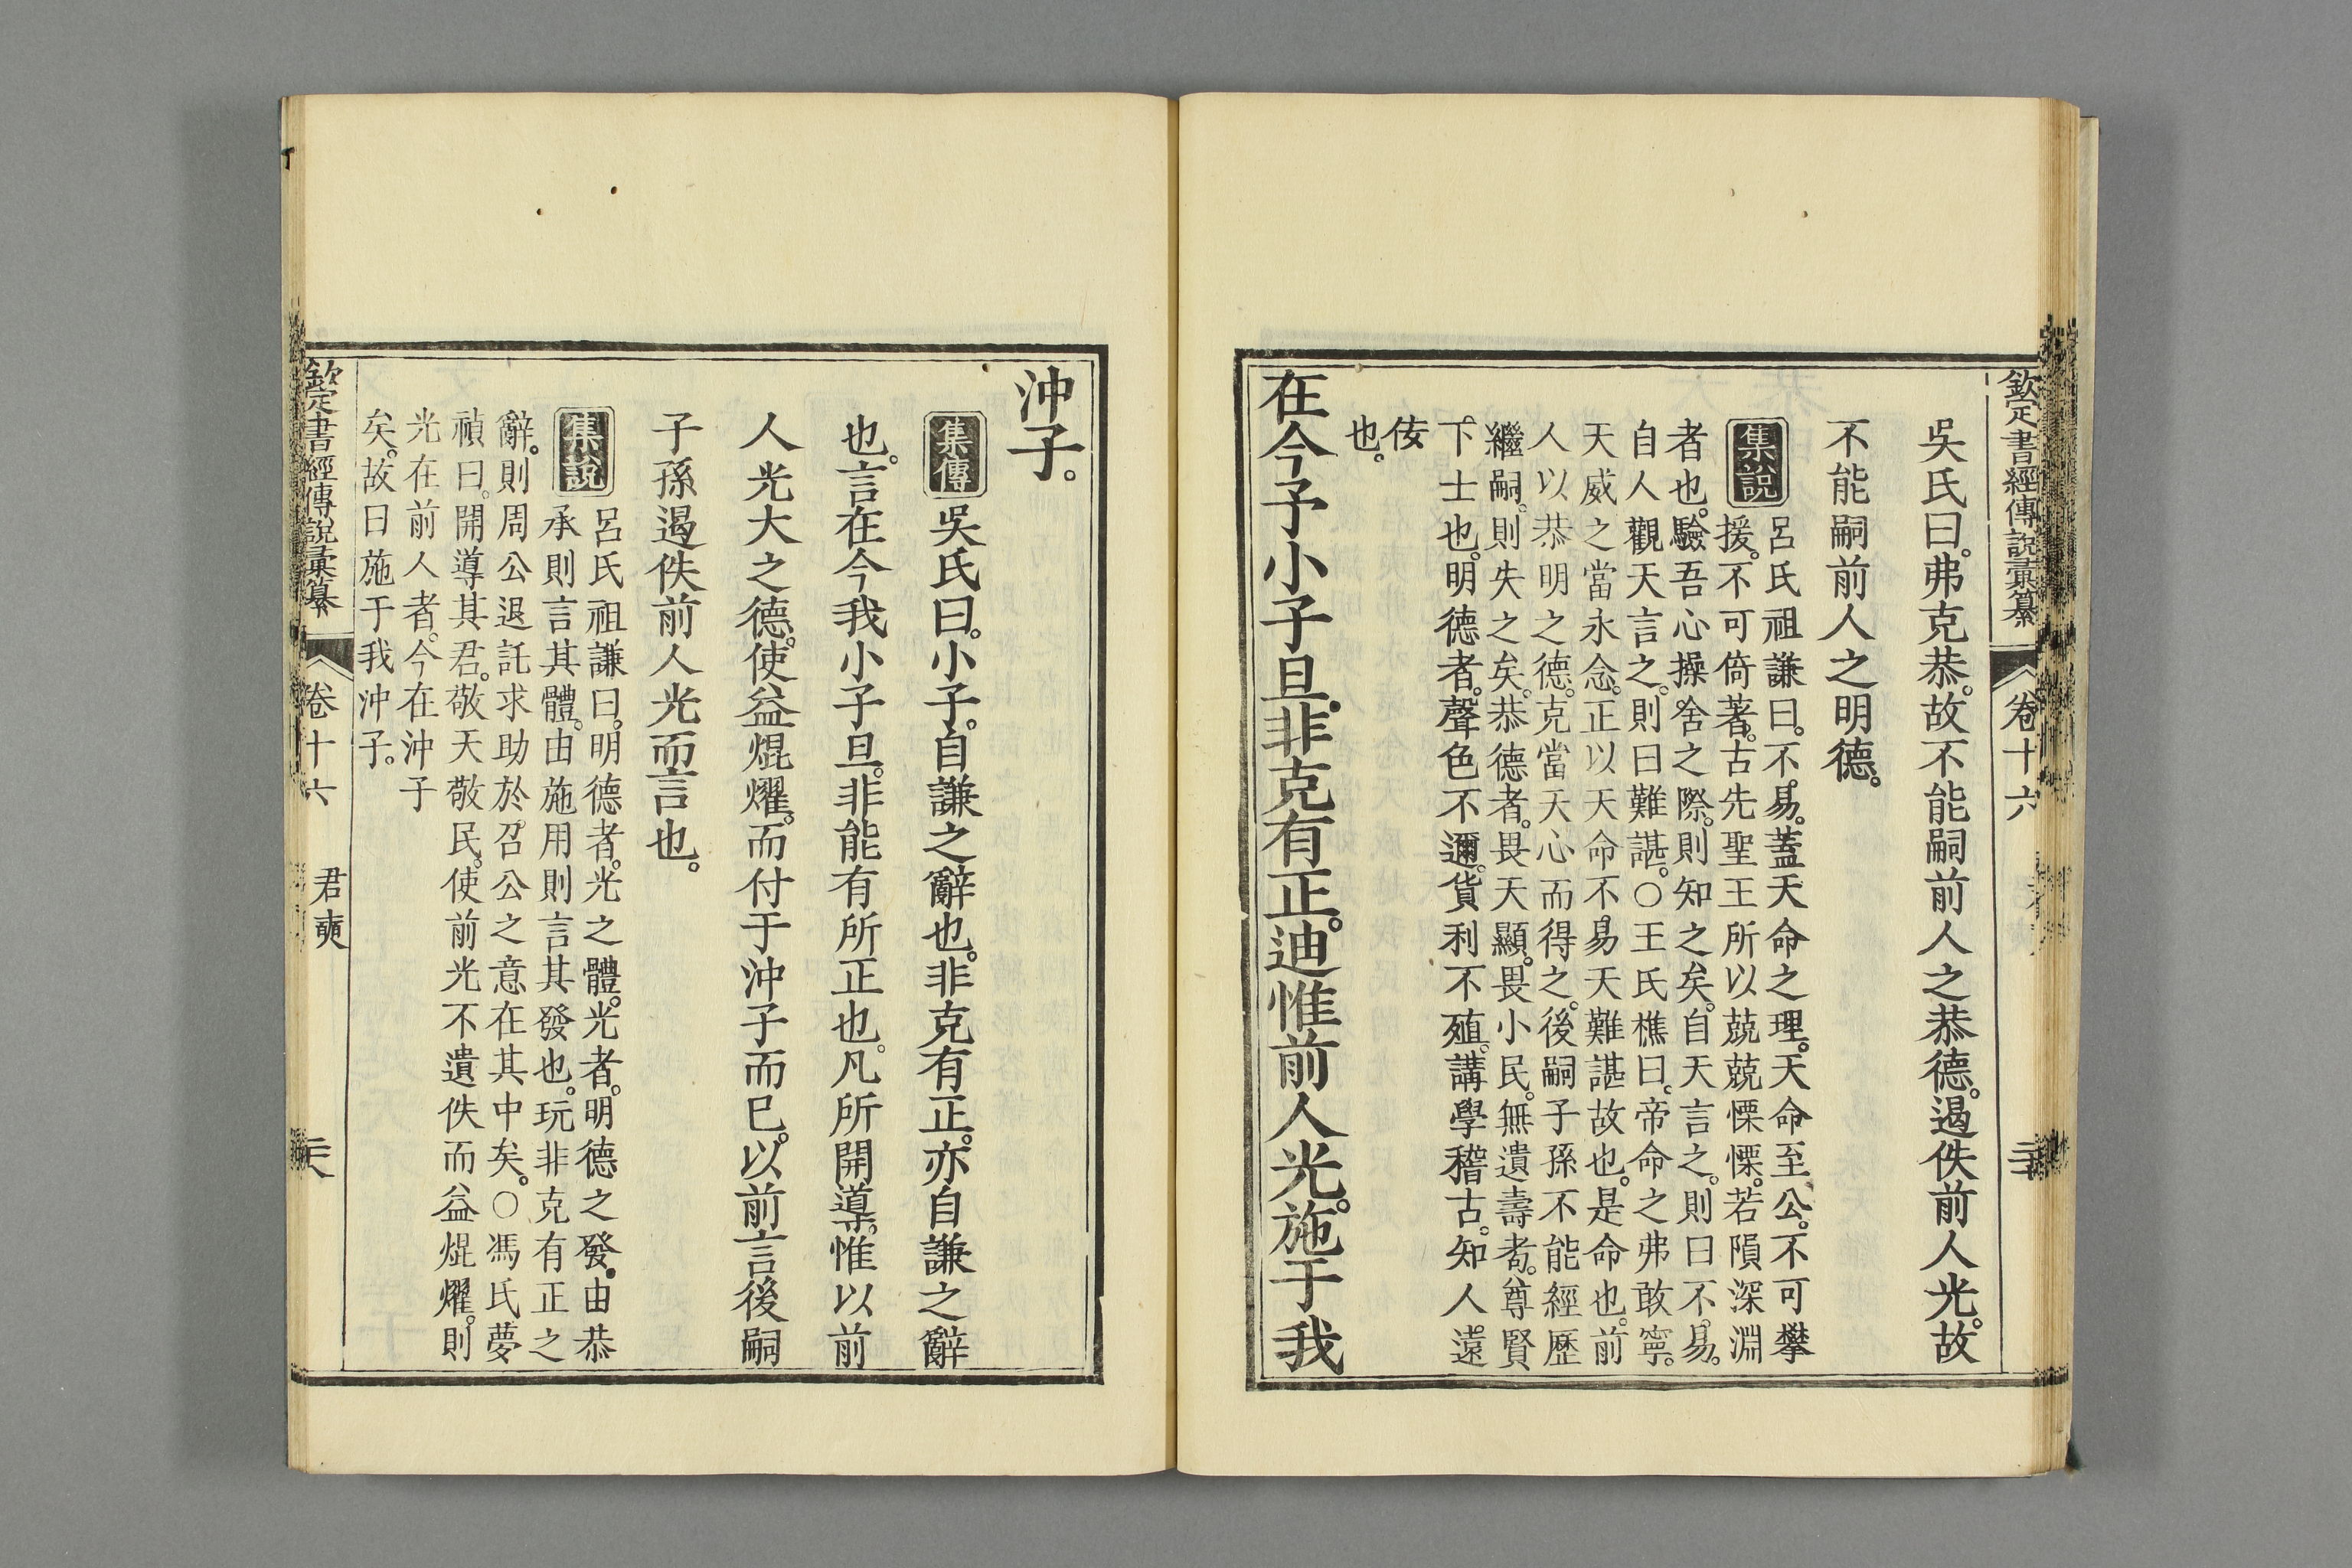 欽定書經傳說彙纂 卷十六
吳氏曰。弗克恭。故不能嗣前人之恭德。遏佚前人光。故
不能嗣前人之明德。
集說
呂氏祖謙曰。不易。蓋天命之理。天命至公。不可攀
援。不可倚著。古先聖王所以兢兢慄慄。若隕深淵
者也。驗吾心操舍之際。則知之矣。自天言之。則曰不易。
自人觀天言之。則曰難諶。○王氏樵曰。帝命之弗敢寧。
天威之當永念。正以天命不易天難諶故也。是命也。前
人以恭明之德。克當天心而得之。後嗣子孫不能經歷
繼嗣。則失之矣。恭德者。畏天顯。畏小民。無遺壽耇。尊賢
下士也。明德者。聲色不邇。貨利不殖。講學稽古。知人遠
佞
也。
在今予小子旦。非克有正。迪惟前人光。施于我
沖子。
集傳
吳氏曰。小子。自謙之辭也。非克有正。亦自謙之辭
也。言在今我小子旦。非能有所正也。凡所開導。惟以前
人光大之德。使益焜燿。而付于沖子而已。以前言後嗣
子孫遏佚前人光而言也。
集說
呂氏祖謙曰。明德者。光之體。光者。明德之發。由恭
承則言其體。由施用則言其發也。玩非克有正之
辭。則周公退託求助於召公之意在其中矣。○馮氏夢
禎曰。開導其君。敬天敬民。使前光不遺佚而益焜燿。則
光在前人者。今在沖子
矣。故曰施于我沖子。
欽定書經傳說彙纂 卷十六 君奭